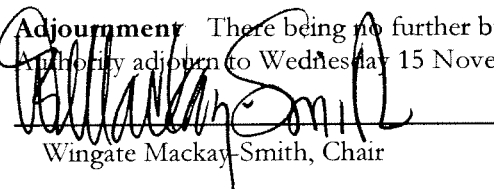 Adjournment There being no further b
Authority adjourn to Wednesday 15 Nove
Wingate Mackay-Smith, Chair